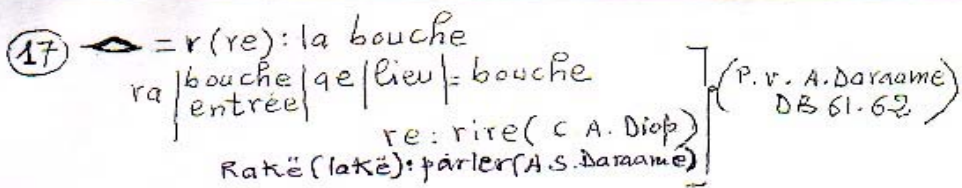 17 = r(re): la bouche
ra | bouche entrée | qe | lieu | = bouche
re: rire (C A. Diop)
Rakë (lakë): parler (A.S. Daraamé)
(P. v. A. Daraamé DB 61.62)